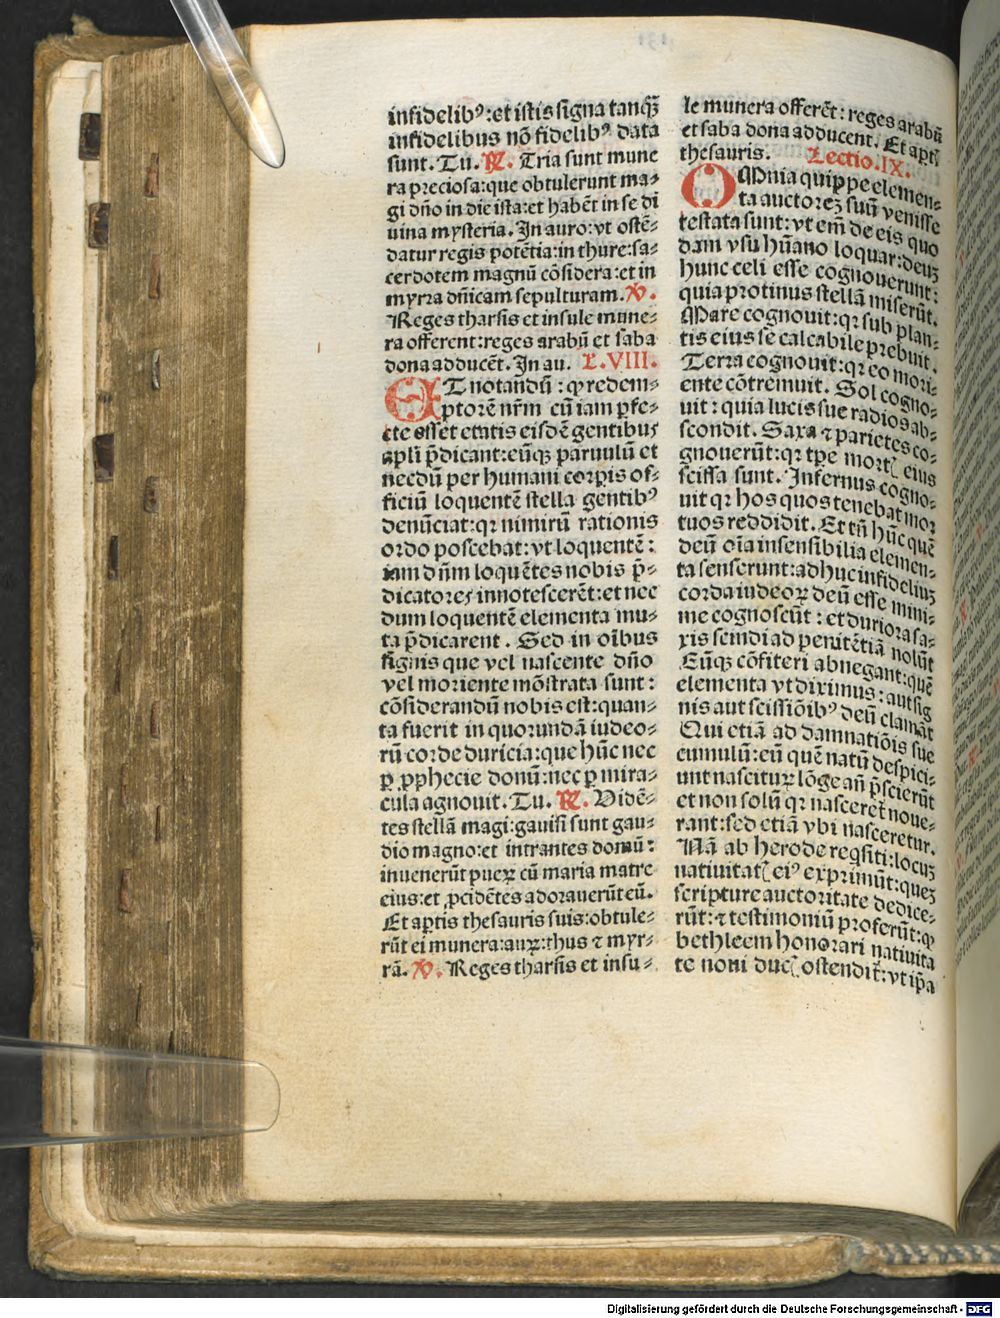 infidelibꝰ:et istis signa tanqᷓ
infidelibus nō fidelibꝰ data
sunt. Tu. ℟. Tria sunt mune
ra preciosa:que obtulerunt ma⸗
gi dño in die ista:et habēt in se di
uina mysteria. In auro:vt ostē⸗
datur regis potētia:in thure:sa⸗
cerdotem magnū cōsidera:et in
myrra dñicam sepulturam. ℣.
Reges tharsis et insule mune⸗
ra offerent:reges arabū et saba
dona adducēt. In au. L.VIII.
ET notandū : ꝙ redem⸗
ptorē nr̄m cū iam ꝑfe⸗
cte esset etatis eisdē gentibus
apl̄i p̄dicant:eūqꝫ paruulū et
necdū per humani corꝑis of⸗
ficiū loquentē stella gentibꝰ
denūciat:qꝛ nimirū rationis
ordo poscebat:vt loquentē :
iam dñm loquētes nobis p̄⸗
dicatores innotescerēt:et nec
dum loquentē elementa mu⸗
ta p̄dicarent . Sed in oībus
signis que vel nascente dño
vel moriente mōstrata sunt :
cōsiderandū nobis est:quan⸗
ta fuerit in quorundā iudeo⸗
rū corde duricia:que hūc nec
ꝑ ꝓphecie donū:nec ꝑ mira⸗
cula agnouit. Tu. ℟. Vidē⸗
tes stellā magi:gauisi sunt gau⸗
dio magno:et intrantes domū :
inuenerūt pueꝝ cū maria matre
eius:et ꝓcidētes adorauerūt eū.
Et aꝑtis thesauris suis:obtule⸗
rūt ei munera:auꝝ:thus ⁊ myr⸗
rā. ℣. Reges tharsis et insu⸗
le munera offerēt : reges arabū
et saba dona adducent. Et aꝑtꝭ
thesauris. Lectio.IX.
OMnia quippe elemen⸗
ta auctoreꝫ suū venisse
testata sunt: vt em̄ de eis quo
dam vsu hūano loquar:deuꝫ
hunc celi esse cognouerunt:
quia protinus stellā miserūt.
Mare cognouit: qꝛ sub plan⸗
tis eius se calcabile prebuit.
Terra cognouit: qꝛ eo mori⸗
ente cōtremuit. Sol cogno⸗
uit : quia lucis sue radios ab⸗
scondit. Saxa ⁊ parietes co⸗
gnouerūt: qꝛ tꝑe mortꝭ eius
scissa sunt. Infernus cogno⸗
uit qꝛ hos quos tenebat mor
tuos reddidit. Et tn̄ hūc quē
deū oīa insensibilia elemen⸗
ta senserunt:adhuc infideliuꝫ
corda iudeoꝝ deū esse mini⸗
me cognoscūt : et duriora sa⸗
xis scindi ad penitētiā nolūt
Eūqꝫ cōfiteri abnegant:quē
elementa vt diximus : aut sig
nis aut scissiōibꝰ deū clamāt
Qui etiā ad damnatiōis sue
cumulū:eū quē natū despici⸗
unt nascituꝝ lōge an̄ p̄scierūt
et non solū qꝛ nasceret noue⸗
rant:sed etiā vbi nasceretur.
Nā ab herode reqsiti:locuꝫ
natiuitatꝭ eiꝰ exprimūt:queꝫ
scripture auctoritate dedice⸗
rūt: ⁊ testimoniū proferūt:ꝙ
bethleem honorari natiuita
te noui ducꝭ ostendit̄: vt ip̄a
Digitalisierung gefördert durch die Deutsche Forschungsgemeinschaft - DFG